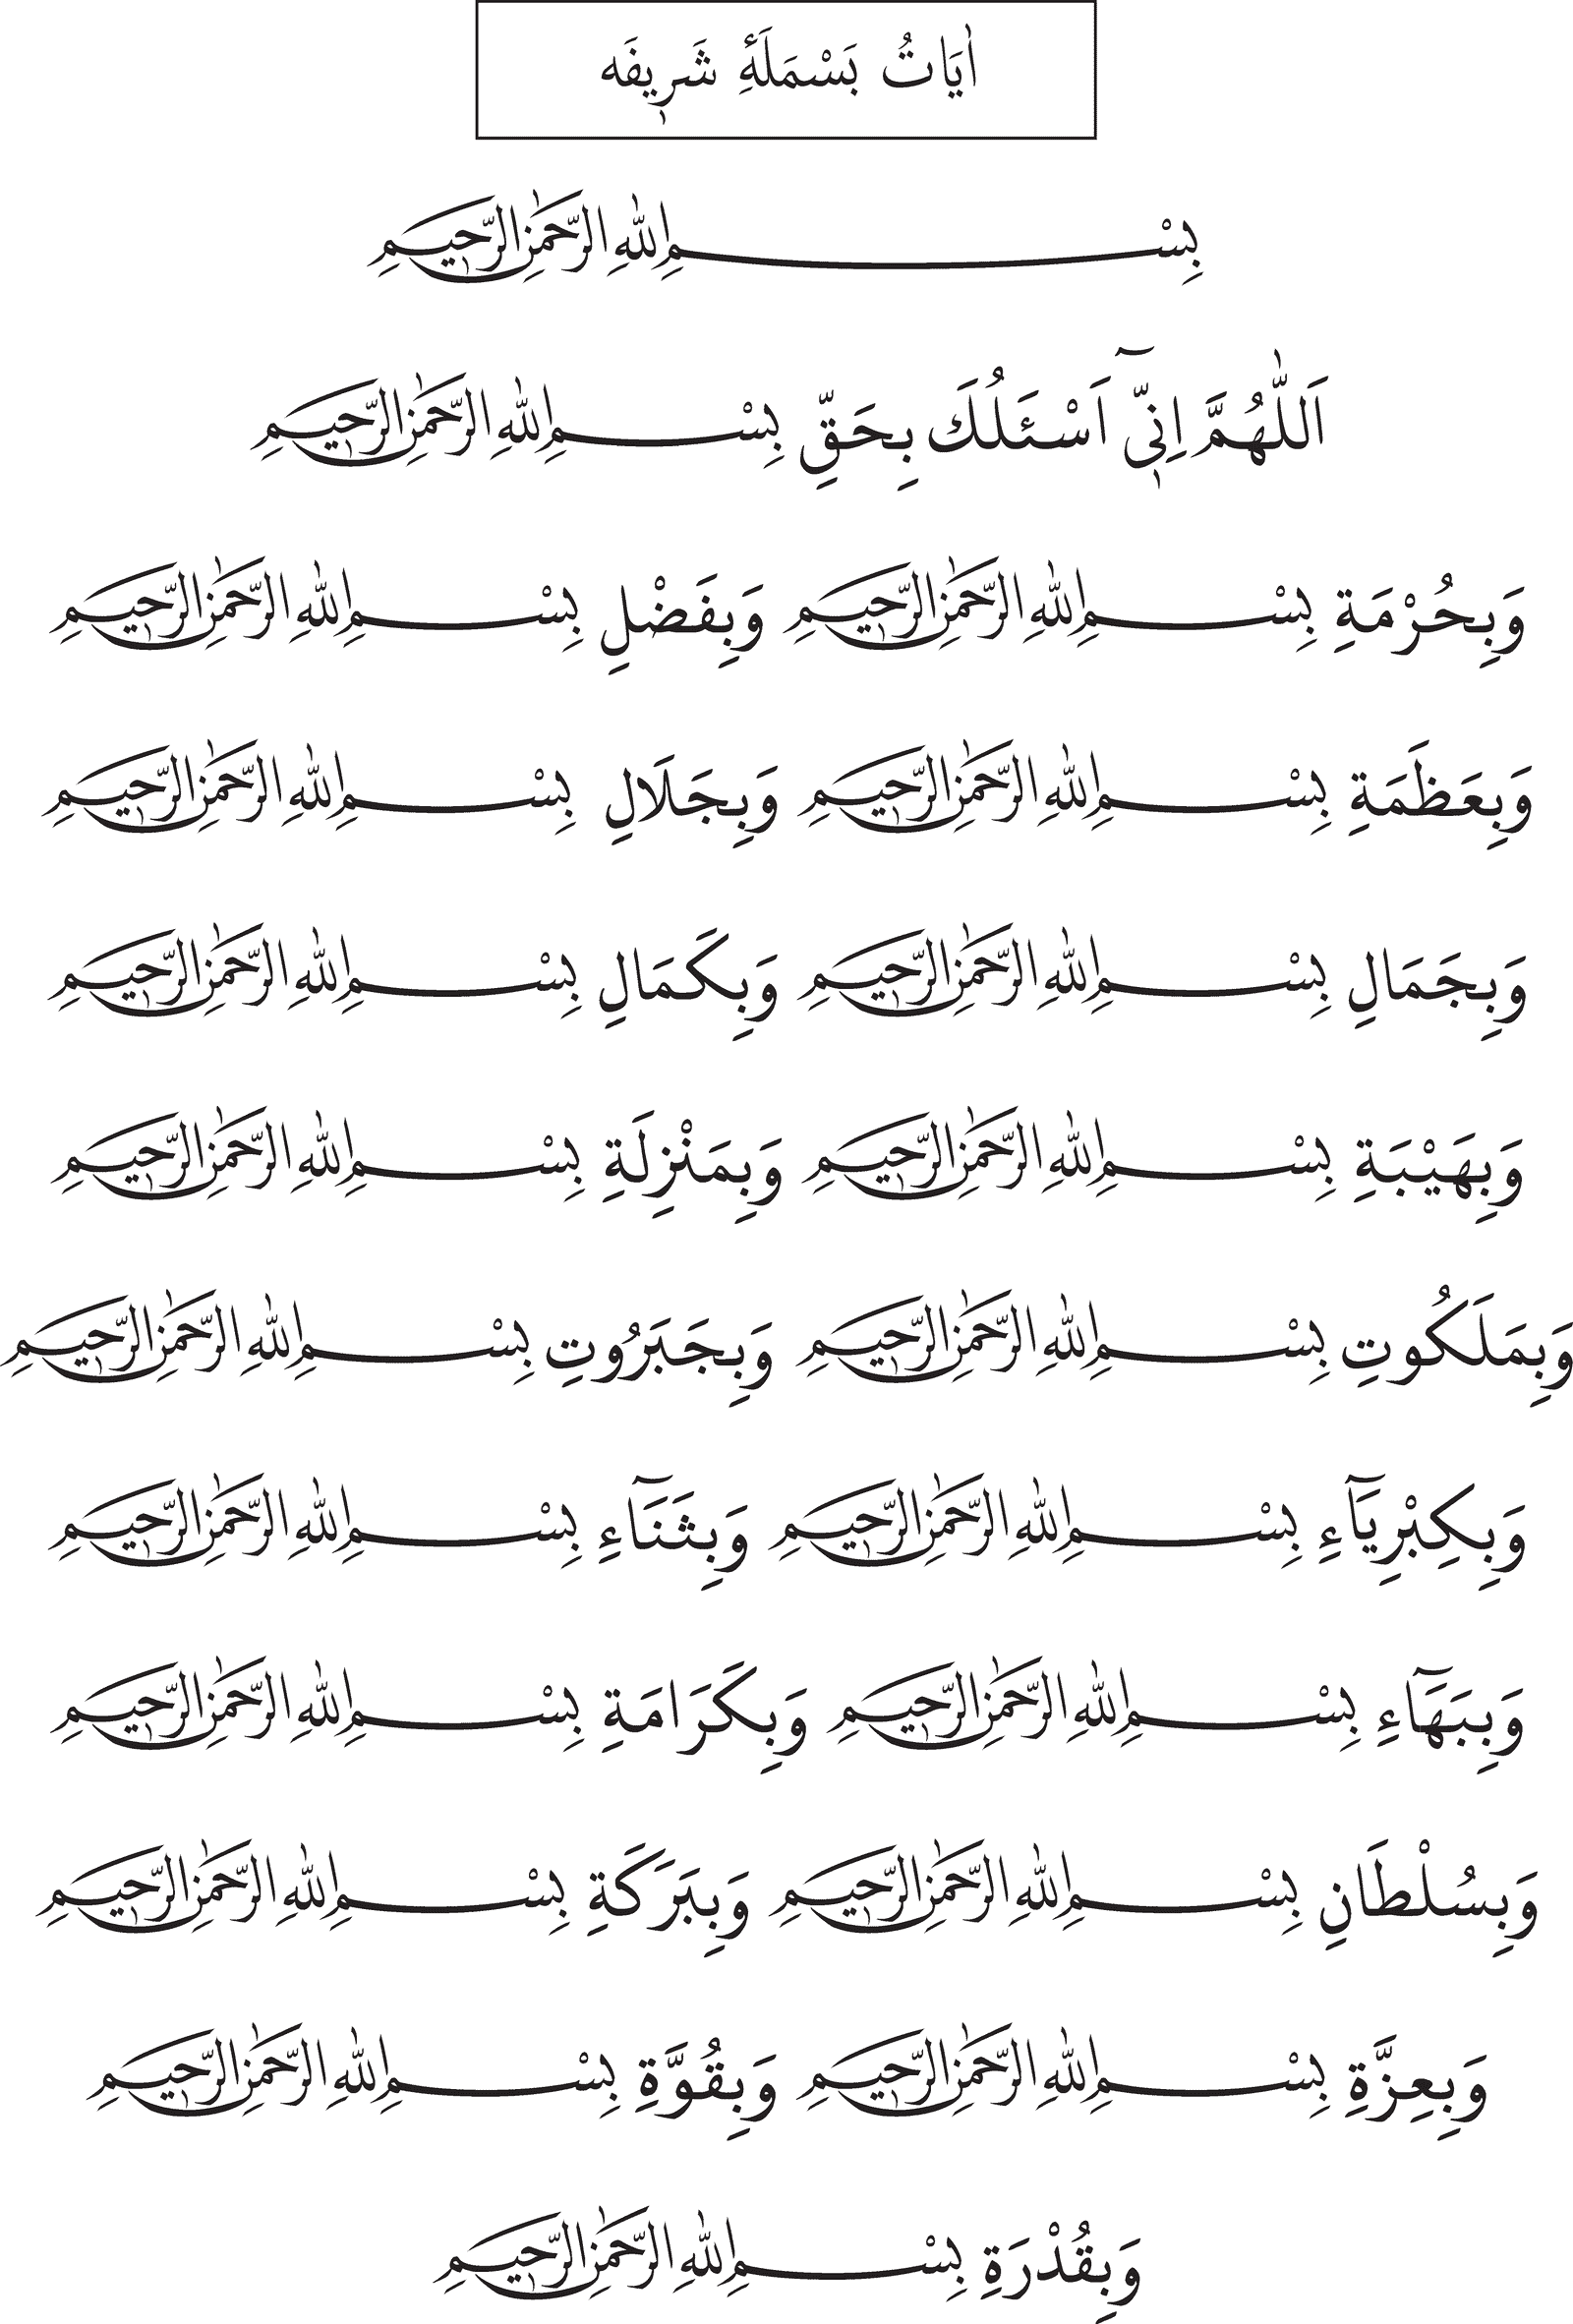 اٰيَاتُ بَسْمَلَۀِ شَرٖيفَه
بِسْــــــــــمِ اللّٰهِ الرَّحْمٰنِ الرَّحٖيمِ
اَللّٰهُمَّ اِنّٖٓي اَسْئَلُكَ بِحَقِّ بِسْمِ اللّٰهِ الرَّحْمٰنِ الرَّحٖيمِ
وَبِحُرْمَةِ بِسْمِ اللّٰهِ الرَّحْمٰنِ الرَّحٖيمِ وَبِفَضْلِ بِسْمِ اللّٰهِ الرَّحْمٰنِ الرَّحٖيمِ
وَبِعَظَمَةِ بِسْمِ اللّٰهِ الرَّحْمٰنِ الرَّحٖيمِ وَبِجَلَالِ بِسْمِ اللّٰهِ الرَّحْمٰنِ الرَّحٖيمِ
وَبِجَمَالِ بِسْمِ اللّٰهِ الرَّحْمٰنِ الرَّحٖيمِ وَبِكَمَالِ بِسْمِ اللّٰهِ الرَّحْمٰنِ الرَّحٖيمِ
وَبِهَيْبَةِ بِسْمِ اللّٰهِ الرَّحْمٰنِ الرَّحٖيمِ وَبِمَنْزِلَةِ بِسْمِ اللّٰهِ الرَّحْمٰنِ الرَّحٖيمِ
وَبِمَلَكُوتِ بِسْمِ اللّٰهِ الرَّحْمٰنِ الرَّحٖيمِ وَبِجَبَرُوتِ بِسْمِ اللّٰهِ الرَّحْمٰنِ الرَّحٖيمِ
وَبِكِبْرِيَٓاءِ بِسْمِ اللّٰهِ الرَّحْمٰنِ الرَّحٖيمِ وَبِثَنَٓاءِ بِسْمِ اللّٰهِ الرَّحْمٰنِ الرَّحٖيمِ
وَبِبَهَٓاءِ بِسْمِ اللّٰهِ الرَّحْمٰنِ الرَّحٖيمِ وَبِكَرَامَةِ بِسْمِ اللّٰهِ الرَّحْمٰنِ الرَّحٖيمِ
وَبِسُلْطَانِ بِسْمِ اللّٰهِ الرَّحْمٰنِ الرَّحٖيمِ وَبِبَرَكَةِ بِسْمِ اللّٰهِ الرَّحْمٰنِ الرَّحٖيمِ
وَبِعِزَّةِ بِسْمِ اللّٰهِ الرَّحْمٰنِ الرَّحٖيمِ وَبِقُوَّةِ بِسْمِ اللّٰهِ الرَّحْمٰنِ الرَّحٖيمِ
وَبِقُدْرَةِ بِسْمِ اللّٰهِ الرَّحْمٰنِ الرَّحٖيمِ